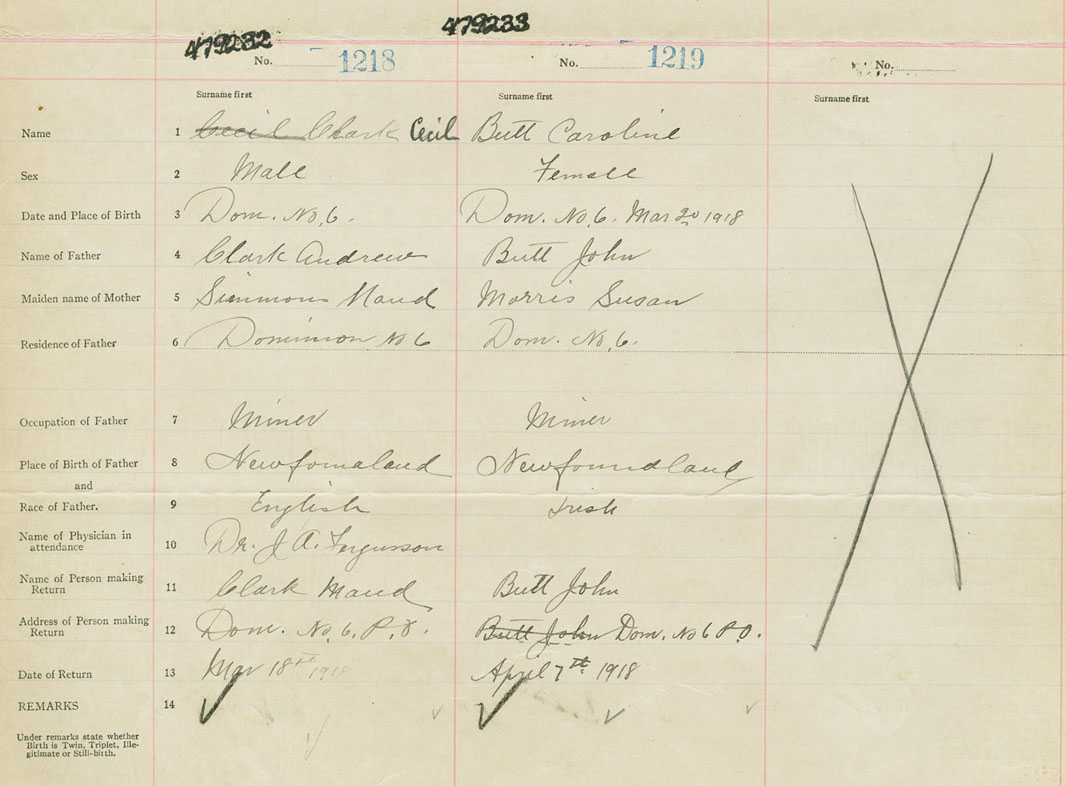 479232 479233
No. 1218 No. 1219 No.
Surname first Surname first Surname first
Name 1 Cecil Clark Cecil Butt Caroline
Sex 2 Male Female
Date and Place of Birth 3 Dom. No. 6. Dom. No. 6. Mar 20 1918
Name of Father 4 Clark Andrew Butt John
Maiden name of Mother 5 Simmons Maud Morris Susan
Residence of Father 6 Dominion No 6 Dom. No. 6.
Occupation of Father 7 Miner Miner
Place of Birth of Father 8 Newfoundland Newfoundland
and
Race of Father. 9 English Irish
Name of Physician in
attendance 10 Dr. J. A. Fergusson
Name of Person making
Return 11 Clark Maud Butt John
Address of Person making
Return 12 Dom. No. 6, P.O. Butt John Dom. No 6 P.O.
Date of Return 13 Mar 18th 1918 April 7th 1918
REMARKS 14
Under remarks state whether
Birth is Twin, Triplet, Ille-
gitimate or Still-birth.